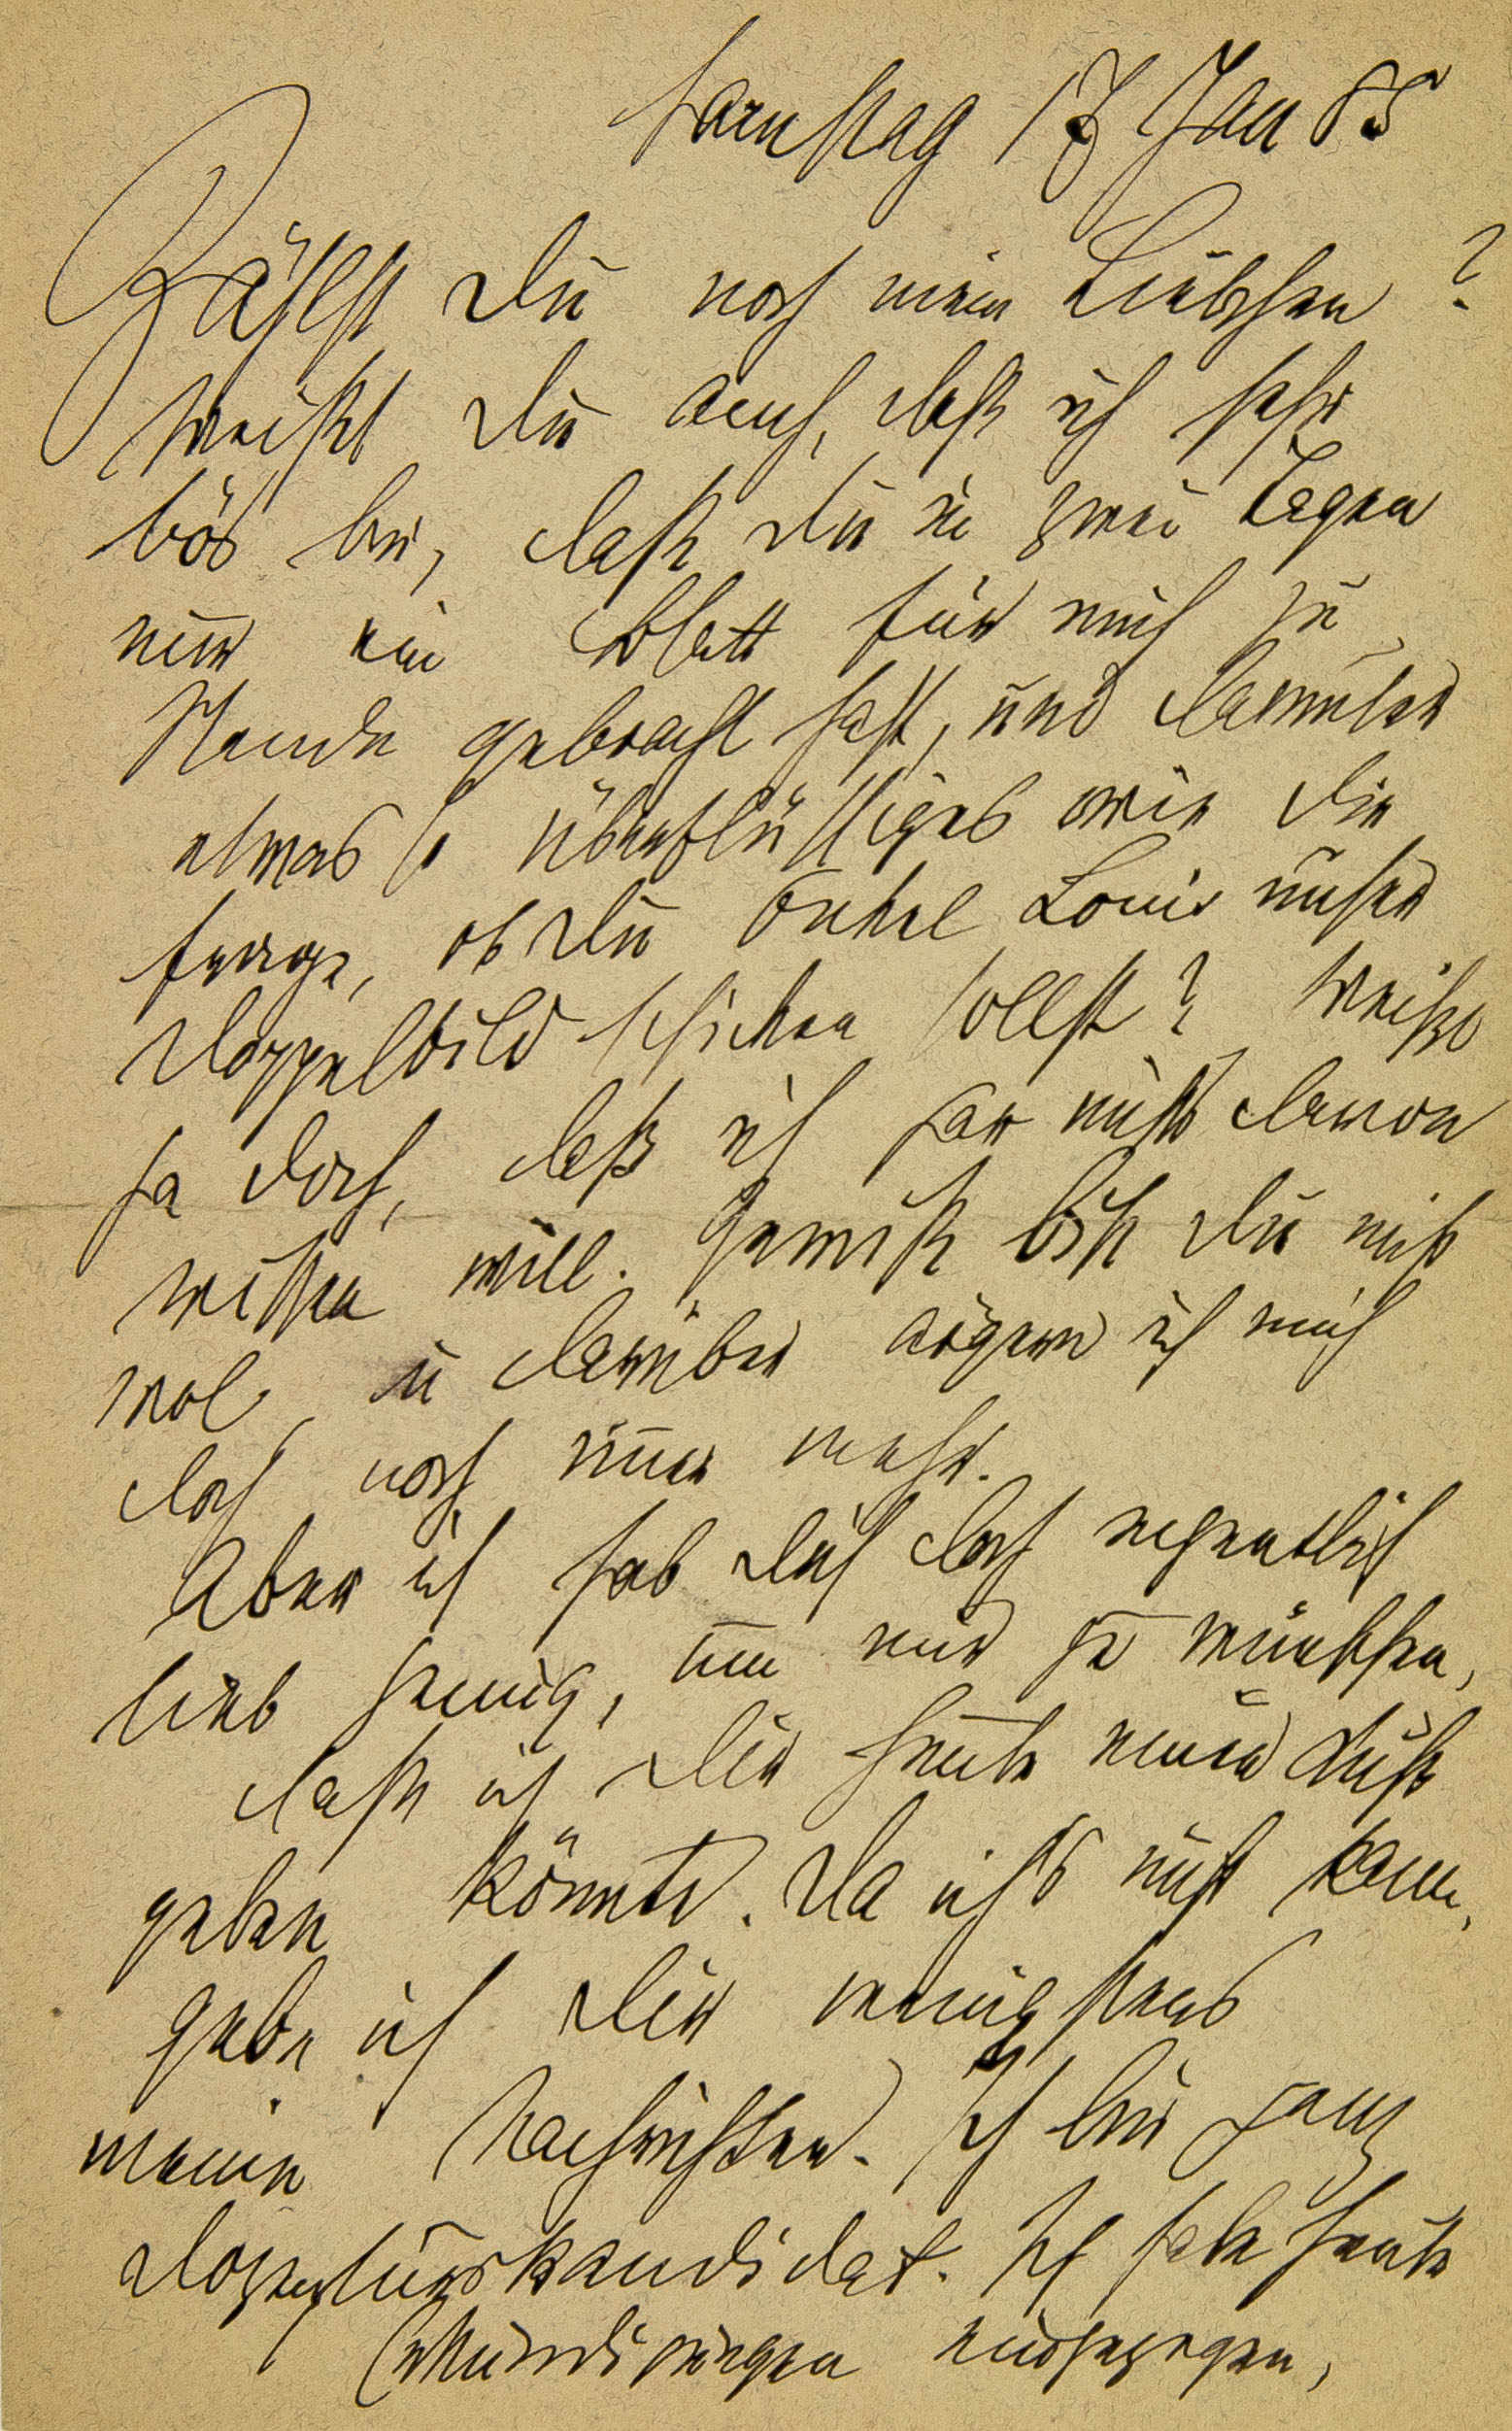 Samstag 17 Jan 85
Zählst Du noch mein Liebchen?
Weißt Du auch, daß ich sehr
bös bin, daß Du in zwei Tagen
nur ein Blatt für mich zu
Stande gebracht hast, und darunter
etwas so Überflüssiges wie die
Frage, ob Du Onkel Louis unser
Doppelbild schicken sollst? Weißt
ja doch, daß ich gar nichts davon
wissen will. Gewiß bist Du nicht
wol, u darüber ärgere ich mich
doch noch mehr.
Aber ich hab Dich doch eigentlich
lieb genug, um mir zu wünschen,
daß ich Dir heute einen Kuß
geben könnte. Da ich's nicht kann,
gebe ich Dir wenigstens
meine Nachrichten. Ich bin ganz
Dozenturskandidat. Ich habe heute
Erkundigungen eingezogen,